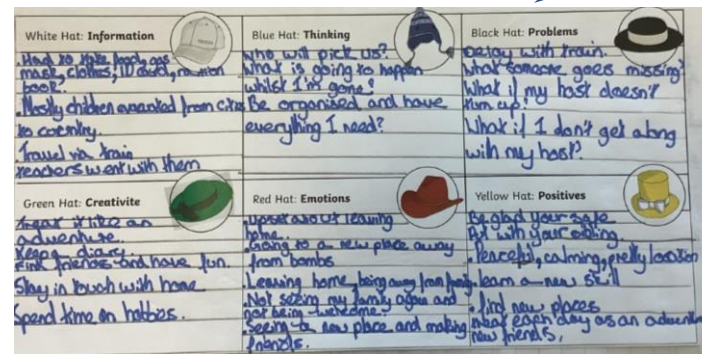 White Hat: Information
. Had to take food, gas
mask, clothes, ID card, ration
book.
. Mostly children evacuated from cities
to country.
. Travel via train
teachers went with them
Blue Hat: Thinking
Who will pick us?
What is going to happen
whilst I'm gone?
Be organised and have
everything I need?
Black Hat: Problems
Delay with train.
What someone goes missing?
What if my host doesn't
turn up?
What if I don't get along
with my host?
Green Hat: Creativite
Treat it like an
adventure.
Keep a diary.
Find friends and have fun.
Stay in touch with home
Spend time on hobbies.
Red Hat: Emotions
. Upset about leaving
home.
. Going to a new place away
from bombs
. Leaving home, being away from family
. Not seeing my family again and
not being welcome?
. Seeing a new place and making
friends.
Yellow Hat: Positives
Be glad your safe
with your sibling.
. Peaceful, calming, pretty location
. learn a new skill
. find new places
treat each day as an adventure
new friends,